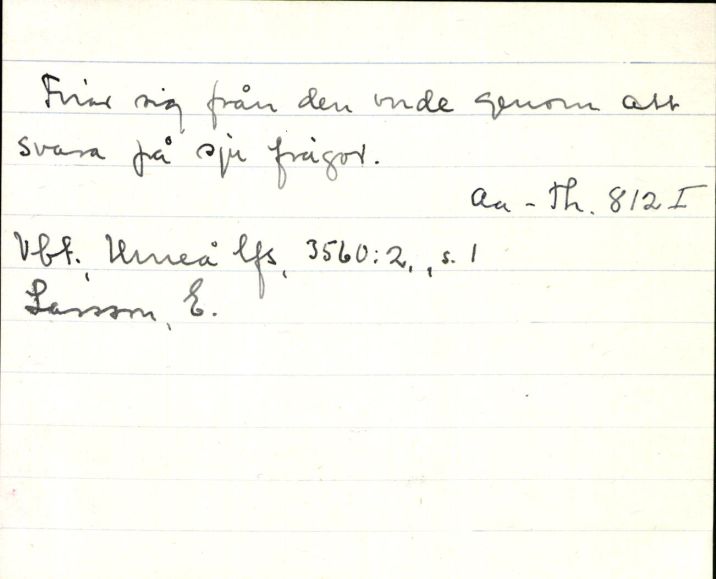 Friar sig från den onde genom att
svara på sju frågor.
Aa-Th. 812 I
Vbt., Umeå lfs, 3560:2, , s. 1
Larsson, E.